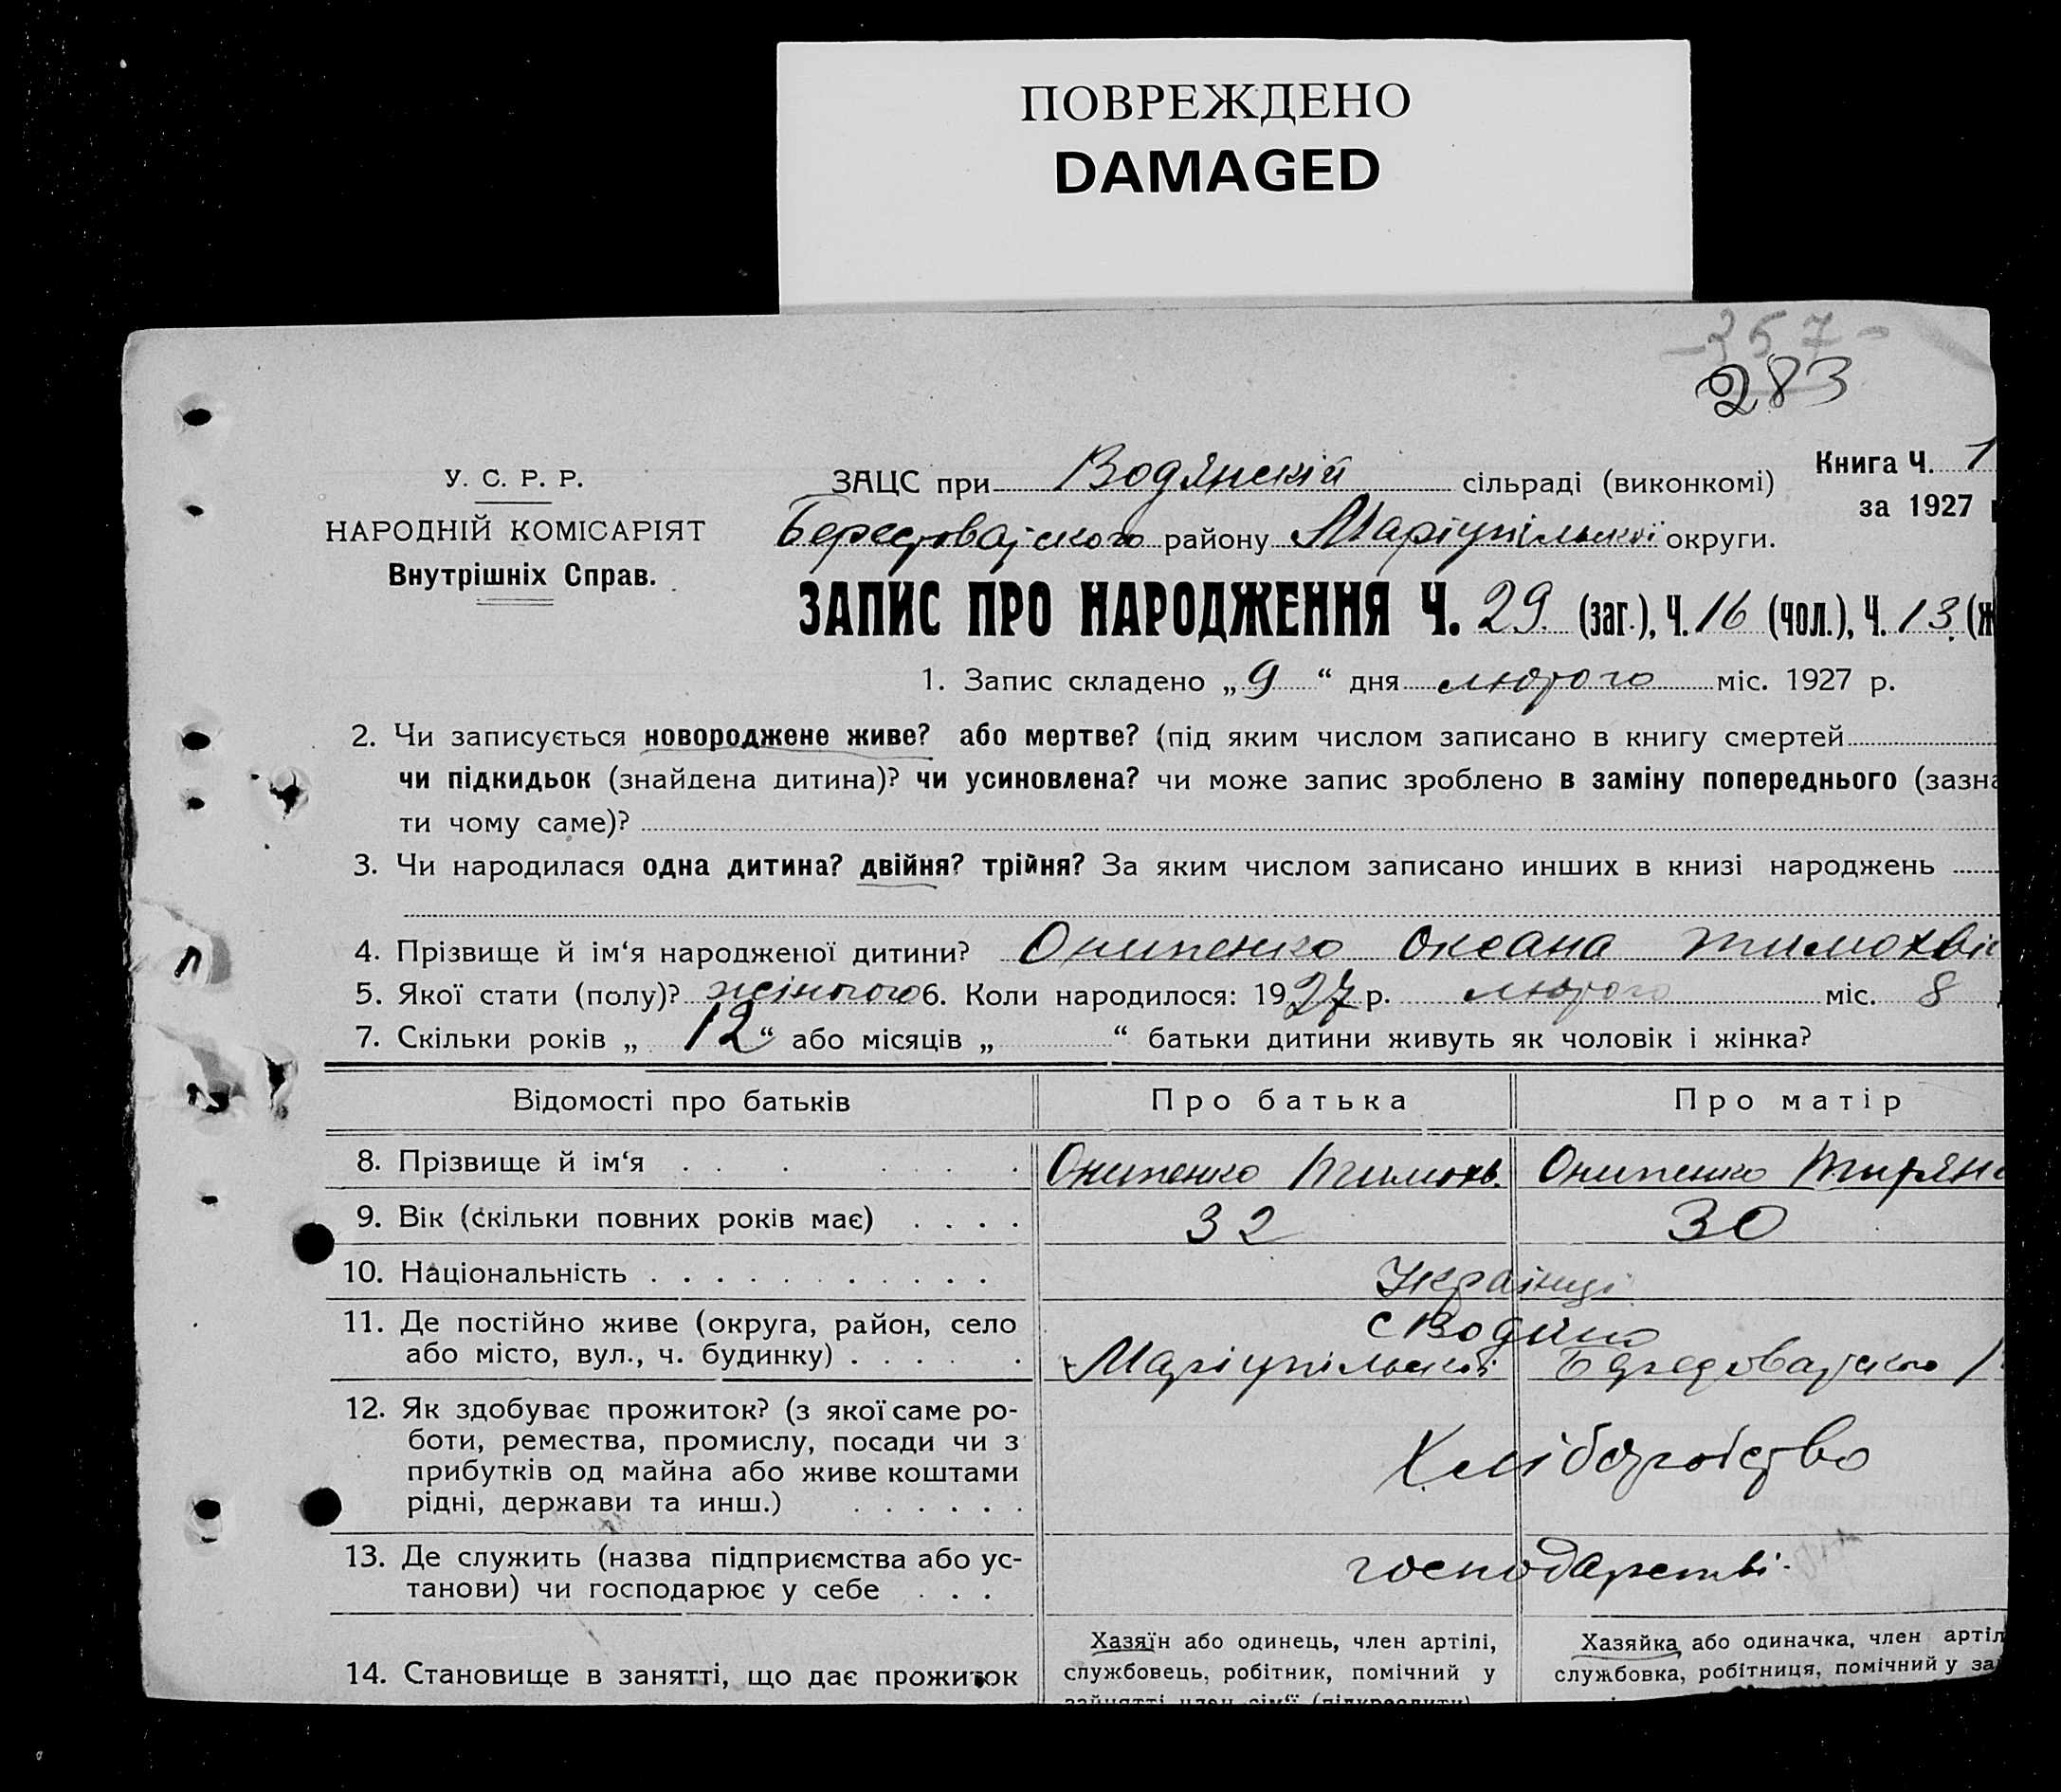 ПОВРЕЖДЕНО
DAMAGED
-357-
283
У. С. Р. Р.
НАРОДНІЙ КОМІСАРІЯТ
Внутрішніх Справ.
ЗАЦС при Водянскій сільраді (виконкомі)
Книга Ч. 1
за 1927
Берестовајского району Маріупільскої округи.
ЗАПИС ПРО НАРОДЖЕННЯ Ч. 29. (заг.), Ч. 16 (чол.), Ч. 13. (ж
1. Запис складено „ 9 “ дня лютого міс. 1927 р.
2. Чи записується новороджене живе? або мертве? (під яким числом записано в книгу смертей
чи підкидьок (знайдена дитина)? чи усиновлена? чи може запис зроблено в заміну попереднього (зазна
ти чому саме)?
3. Чи народилася одна дитина? двійня? трійня? За яким числом записано инших в книзі народжень
4. Прізвище й ім‘я народженої дитини? Онипенко Оксана Тимохвіє
5. Якої стати (полу)? жіночого 6. Коли народилося: 1927 р. лютого міс. 8
7. Скільки років „ 12 “ або місяців „ “ батьки дитини живуть як чоловік і жінка?
Відомості про батьків Про батька Про матір
8. Прізвище й ім‘я Онипенко Тимохв. Онипенко
9. Вік (скільки повних років має) 32 30
10. Національність Українці
11. Де постійно живе (округа, район, село с Водяно
або місто, вул., ч. будинку) Маріупільскої Берестовајского
12. Як здобуває прожиток? (з якої саме ро-
боти, ремества, промислу, посади чи з Хліборобство
прибутків од майна або живе коштами
рідні, держави та инш.)
13. Де служить (назва підприємства або ус- господарстві.
танови) чи господарює у себе
Хазяїн або одинець, член артілі, Хазяйка або одиначка, член артіл
14. Становище в занятті, що дає прожиток службовець, робітник, помічний у службовка, робітниця, помічний у за
зайнятті член сім‘ї (підкреслити)